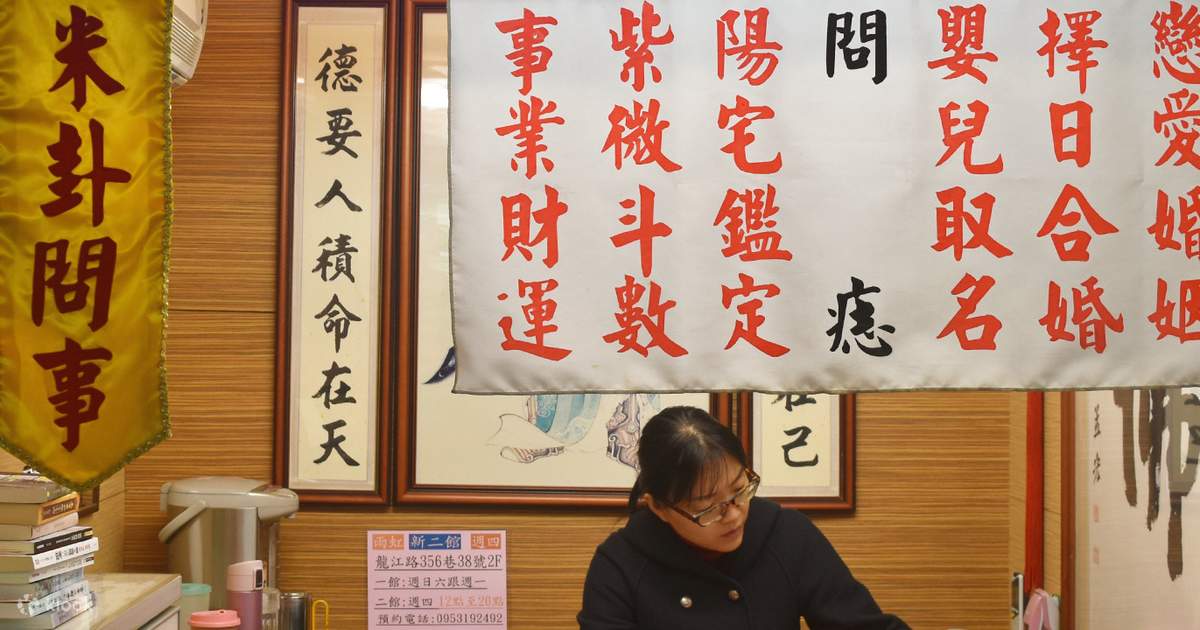 米卦問事
德要人積命在天
戀愛婚姻
擇日合婚
嬰兒取名
問痣
陽宅鑑定
紫微斗數
事業財運
在己
雨虹 新二館 週四
龍江路356巷38號2F
一館:週日六跟週一
二館:週四 12點至20點
預約電話:0953192492
klook